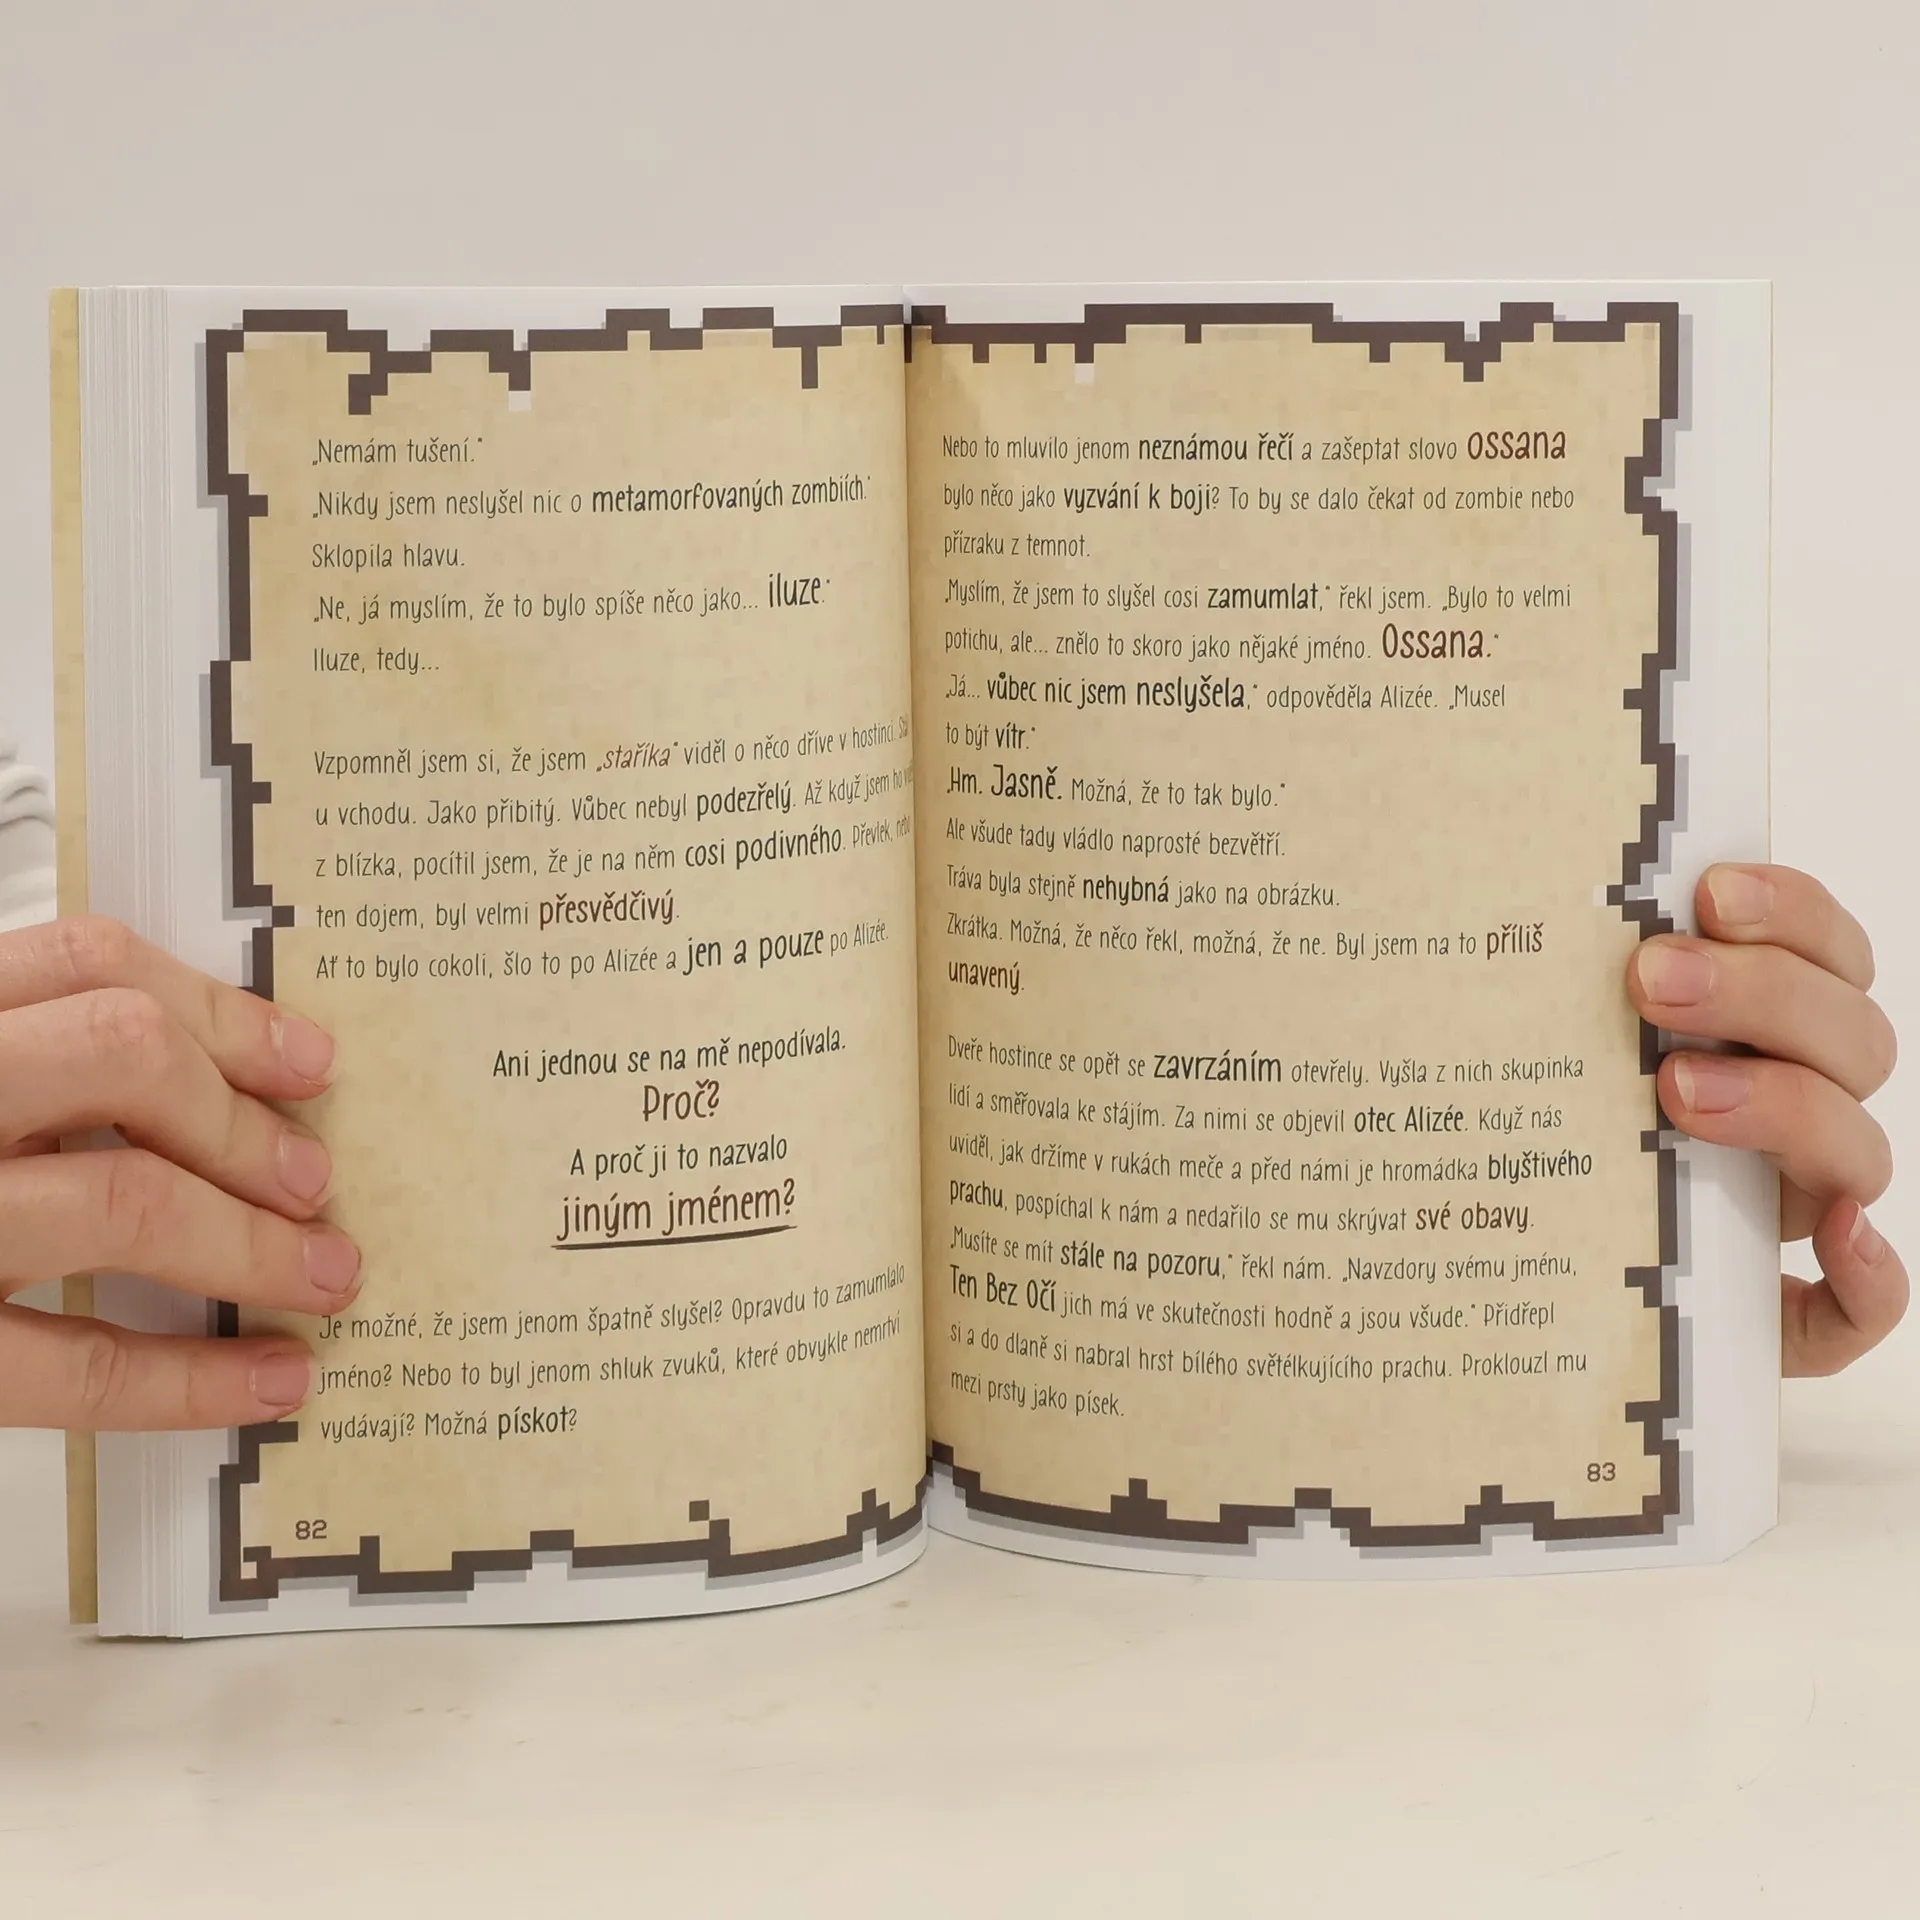 „Nemám tušení.“
„Nikdy jsem neslyšel nic o metamorfovaných zombiích.“
Sklopila hlavu.
„Ne, já myslím, že to bylo spíše něco jako... iluze.“
Iluze, tedy...
Vzpomněl jsem si, že jsem „staříka“ viděl o něco dříve v hostinci.
u vchodu. Jako přibitý. Vůbec nebyl podezřelý. Až když jsem ho
z blízka, pocítil jsem, že je na něm cosi podivného. Převlek, nebo
ten dojem, byl velmi přesvědčivý.
Ať to bylo cokoli, šlo to po Alizée a jen a pouze po Alizée.
Ani jednou se na mě nepodívala.
Proč?
A proč ji to nazvalo
jiným jménem?
Je možné, že jsem jenom špatně slyšel? Opravdu to zamumlalo
jméno? Nebo to byl jenom shluk zvuků, které obvykle nemrtví
vydávají? Možná pískot?
82
Nebo to mluvilo jenom neznámou řečí a zašeptat slovo ossana
bylo něco jako vyzvání k boji? To by se dalo čekat od zombie nebo
přízraku z temnot.
„Myslím, že jsem to slyšel cosi zamumlat,“ řekl jsem. „Bylo to velmi
potichu, ale... znělo to skoro jako nějaké jméno. Ossana.“
„Já... vůbec nic jsem neslyšela,“ odpověděla Alizée. „Musel
to být vítr.“
„Hm. Jasně. Možná, že to tak bylo.“
Ale všude tady vládlo naprosté bezvětří.
Tráva byla stejně nehybná jako na obrázku.
Zkrátka. Možná, že něco řekl, možná, že ne. Byl jsem na to příliš
unavený.
Dveře hostince se opět se zavrzáním otevřely. Vyšla z nich skupinka
lidí a směřovala ke stájím. Za nimi se objevil otec Alizée. Když nás
uviděl, jak držíme v rukách meče a před námi je hromádka blyštivého
prachu, pospíchal k nám a nedařilo se mu skrývat své obavy.
„Musíte se mít stále na pozoru,“ řekl nám. „Navzdory svému jménu,
Ten Bez Očí jich má ve skutečnosti hodně a jsou všude.“ Přidřepl
si a do dlaně si nabral hrst bílého světélkujícího prachu. Proklouzl mu
mezi prsty jako písek.
83